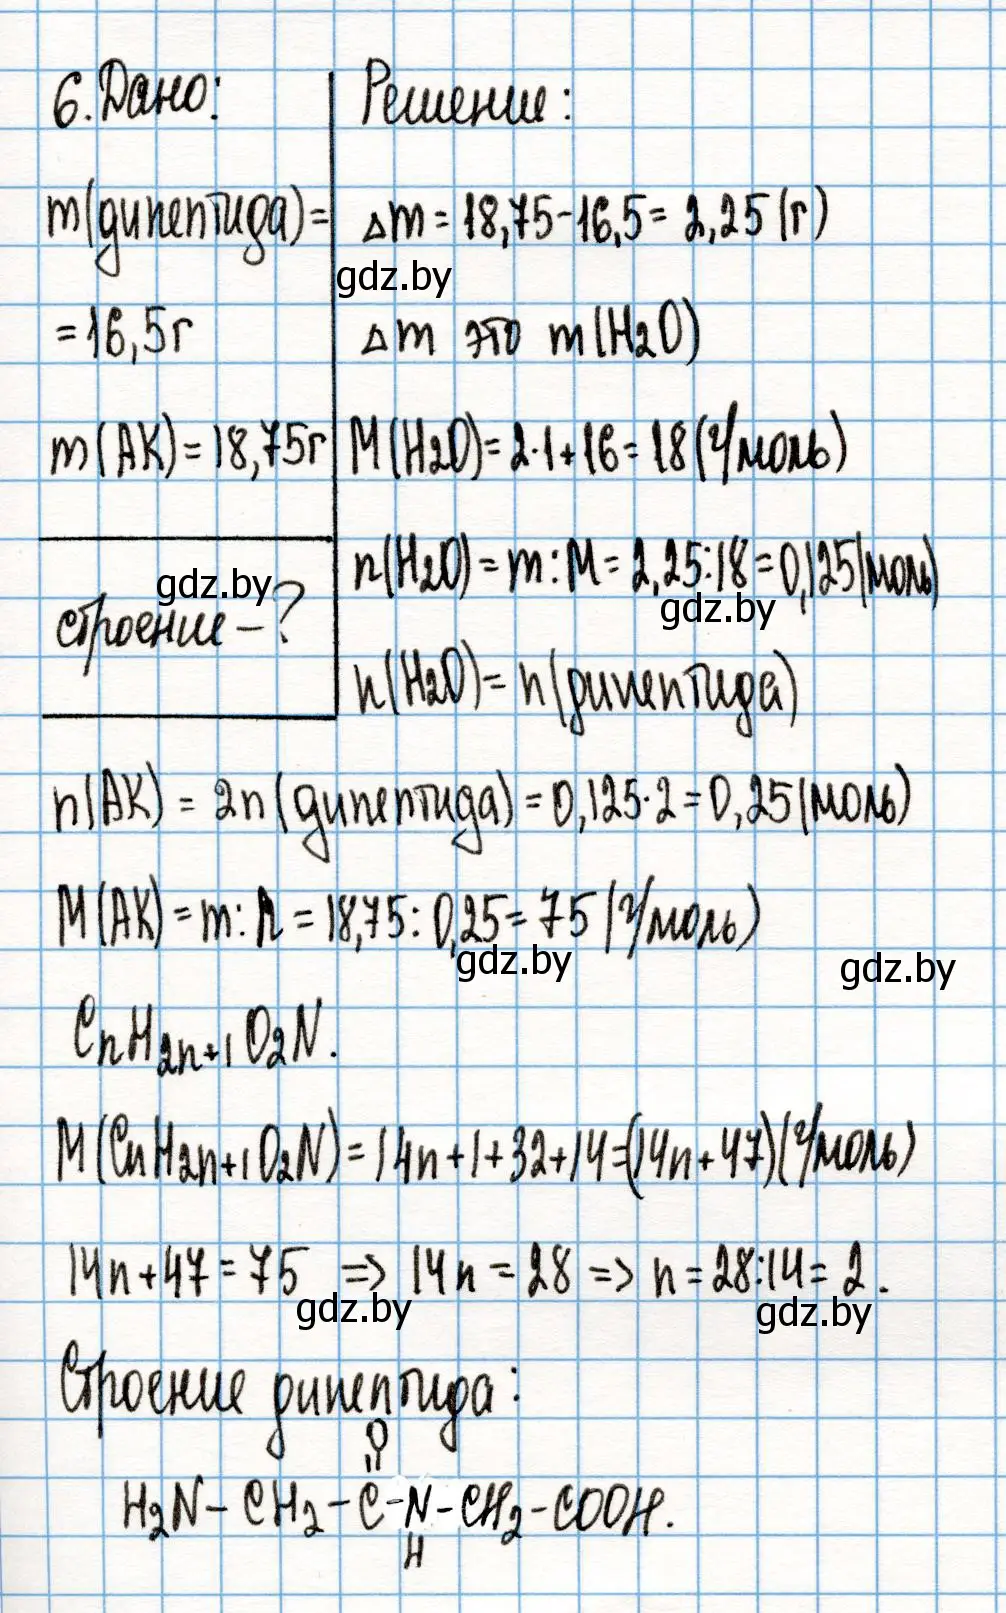 6. Дано:
m(дипептида)=
=16,5г
m(АК)=18,75г
строение-?
Решение:
Δm = 18,75-16,5= 2,25(г)
gdz.by
Δm это m(H2O)
M(H2O)=2·1+16=18(г/моль)
n(H2O)=m:M=2,25:18=0,125(моль)
gdz.by
gdz.by
n(H2O)=n(дипептида)
n(АК) = 2n(дипептида)=0,125·2=0,25(моль)
M(АК)=m:n=18,75:0,25=75(г/моль)
gdz.by
gdz.by
CnH2n+1O2N.
M(CnH2n+1O2N)=14n+1+32+14=(14n+47)(г/моль)
14n+47=75 => 14n=28 => n=28:14=2.
gdz.by
gdz.by
Строение дипептида:
O
H2N-CH2-C-N-CH2-COOH.
H